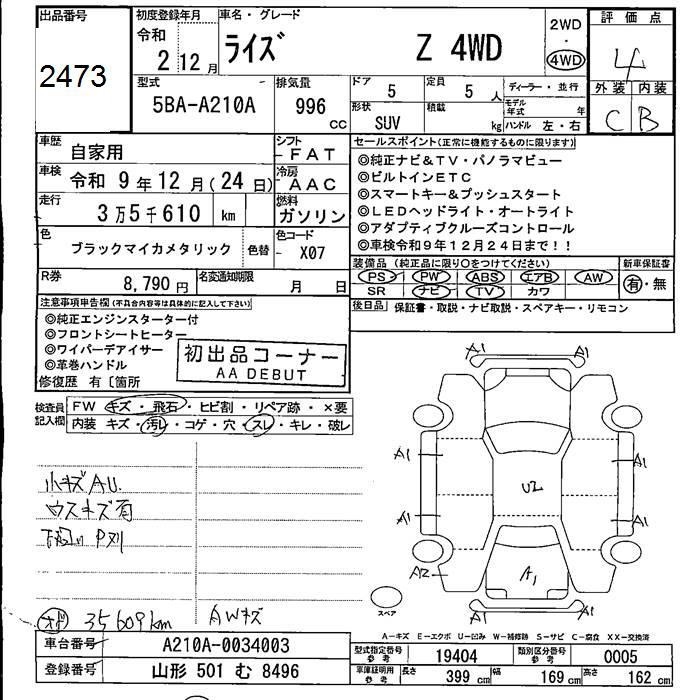 出品番号
2473
初度登録年月
令和
2 12月
車名・グレード
ライズ Z 4WD
2WD
・
4WD
評価点
4
外装 内装
C B
型式
5BA-A210A
排気量
996
CC
ドア
5
定員
5人
形状
SUV
積載
kg
ディーラー・並行
モデル年式 年
ハンドル 左・右
車歴
自家用
シフト
FAT
車検
令和 9年12月(24日)
冷房
AAC
走行
3万5千610 km
燃料
ガソリン
色
ブラックマイカメタリック
色替
色コード
X07
R券
8,790円
名変通知期限
月 日
セールスポイント(正常に機能するものに限ります)
◎純正ナビ&TV・パノラマビュー
◎ビルトインETC
◎スマートキー&プッシュスタート
◎LEDヘッドライト・オートライト
◎アダプティブクルーズコントロール
◎車検令和9年12月24日まで!!
装備品(純正品に限り○をつけてください)
PS PW ABS エアB AW
SR ナビ TV カワ
新車保証書
有・無
後日品 保証書・取説・ナビ取説・スペアキー・リモコン
注意事項申告欄(不具合内容等は具体的に記入して下さい)
◎純正エンジンスターター付
◎フロントシートヒーター
◎ワイパーデアイサー
◎革巻ハンドル
修復歴 有〔箇所
初出品コーナー
AA DEBUT
検査員記入欄
FW キズ・飛石・ヒビ割・リペア跡・×要
内装 キズ・汚レ・コゲ・穴・スレ・キレ・破レ
小キズAU.
ウスキズ有
下廻り P刈
オド 35609km AWキズ
A1 A1
A1 A1
U2
A1 A1
A2 A1
A1 A1
スペア
A-キズ E-エクボ U-凹み W-補修跡 S-サビ C-腐食 XX-交換済
車台番号
A210A-0034003
登録番号
山形 501 む 8496
型式指定番号
参考
19404
類別区分番号
参考
0005
車庫証明用
参考
長さ 399 cm 幅 169 cm 高さ 162 cm